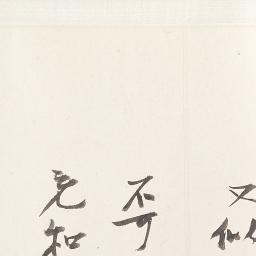 又似
不可
知